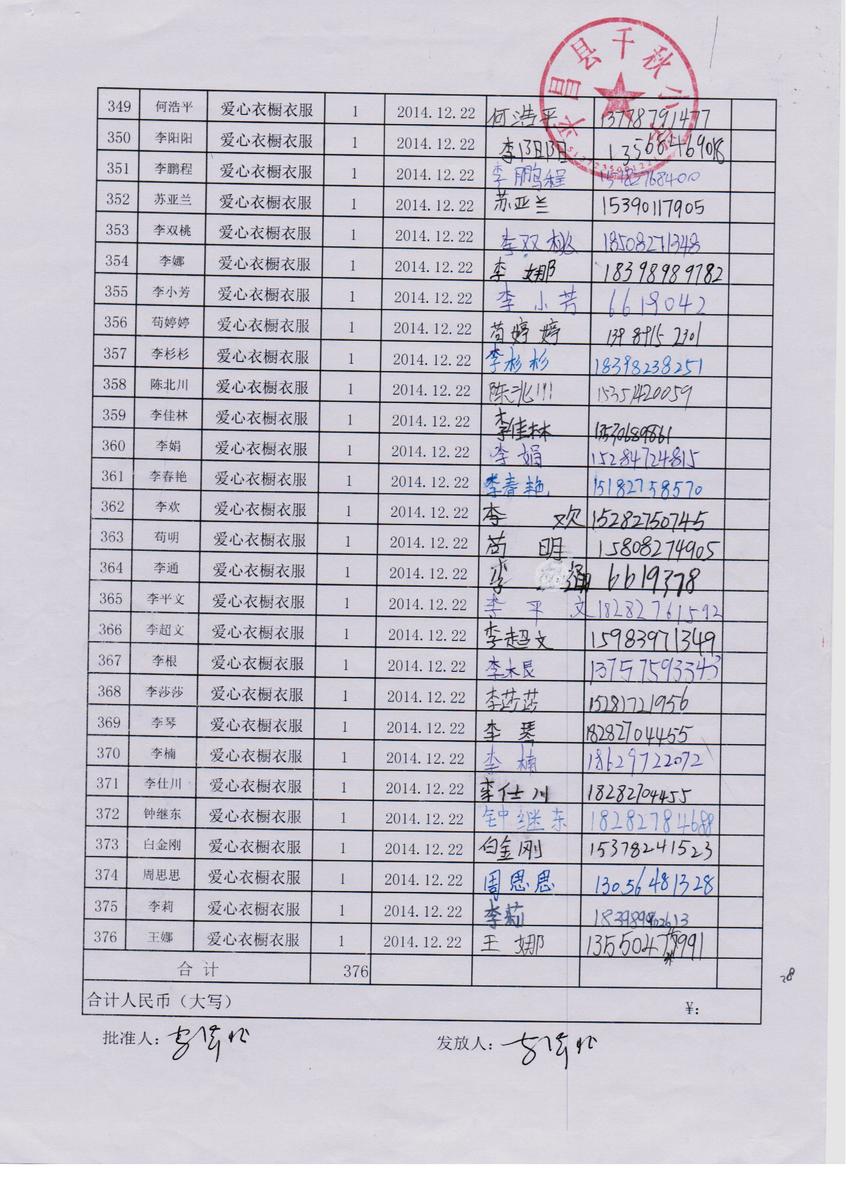 平昌县千秋小学
349 何浩平 爱心衣橱衣服 1 2014.12.22 何浩平 13778791477
350 李阳阳 爱心衣橱衣服 1 2014.12.22 李阳阳
351 李鹏程 爱心衣橱衣服 1 2014.12.22 李鹏程
352 苏亚兰 爱心衣橱衣服 1 2014.12.22 苏亚兰 15390117905
353 李双桃 爱心衣橱衣服 1 2014.12.22 李双桃 18508271348
354 李娜 爱心衣橱衣服 1 2014.12.22 李娜 18398989782
355 李小芳 爱心衣橱衣服 1 2014.12.22 李小芳 6619042
356 苟婷婷 爱心衣橱衣服 1 2014.12.22 苟婷婷 139 8915 2301
357 李杉杉 爱心衣橱衣服 1 2014.12.22 李杉杉 18398238251
358 陈北川 爱心衣橱衣服 1 2014.12.22 陈北川 15351420059
359 李佳林 爱心衣橱衣服 1 2014.12.22 李佳林 13530689861
360 李娟 爱心衣橱衣服 1 2014.12.22 李娟 15284724815
361 李春艳 爱心衣橱衣服 1 2014.12.22 李春艳 15182758570
362 李欢 爱心衣橱衣服 1 2014.12.22 李欢 15282750745
363 苟明 爱心衣橱衣服 1 2014.12.22 苟明 15808274905
364 李通 爱心衣橱衣服 1 2014.12.22 李通 6619378
365 李平文 爱心衣橱衣服 1 2014.12.22 李平文 18282761592
366 李超文 爱心衣橱衣服 1 2014.12.22 李超文 15983971349
367 李根 爱心衣橱衣服 1 2014.12.22 李根 13757593343
368 李莎莎 爱心衣橱衣服 1 2014.12.22 李莎莎 15281721956
369 李琴 爱心衣橱衣服 1 2014.12.22 李琴 18282704455
370 李楠 爱心衣橱衣服 1 2014.12.22 李楠 18629722072
371 李仕川 爱心衣橱衣服 1 2014.12.22 李仕川 18282704455
372 钟继东 爱心衣橱衣服 1 2014.12.22 钟继东
373 白金刚 爱心衣橱衣服 1 2014.12.22 白金刚 15378241523
374 周思思 爱心衣橱衣服 1 2014.12.22 周思思 13056481328
375 李莉 爱心衣橱衣服 1 2014.12.22 李莉
376 王娜 爱心衣橱衣服 1 2014.12.22 王娜
合计 376
28
合计人民币（大写） ¥:
批准人: 发放人: